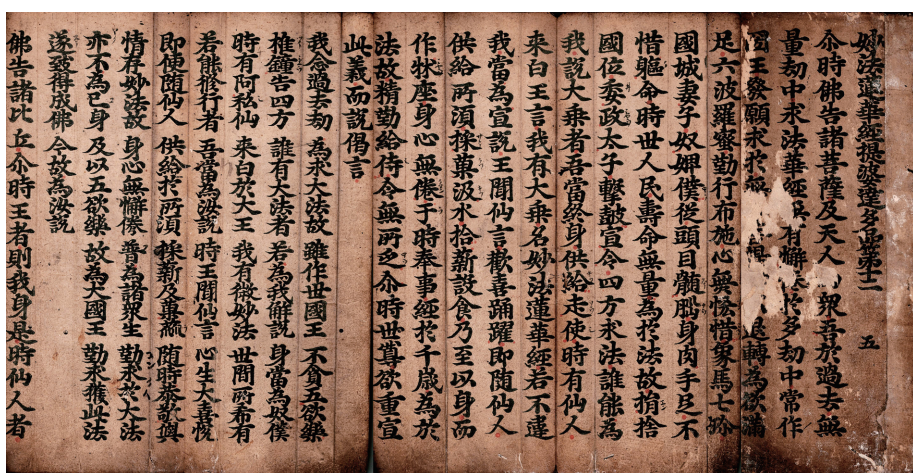 妙法蓮華經提婆達多品第十二 五
尒時佛告諸菩薩及天人 衆吾於過去無
量劫中求法華經 有懈 於多劫中常作
國王發願求於無 退轉為欲滿
足六波羅蜜勤行布施心無悋惜象馬七珎
國城妻子奴婢僕從頭目髓腦身肉手足不
惜軀命時世人民壽命無量為於法故捐捨
國位委政太子擊鼓宣令四方求法誰能為
我說大乗者吾當終身供給走使時有仙人
来白王言我有大乗名妙法蓮華經若不違
我當為宣說王聞仙言歡喜踊躍即随仙人
供給所湏採菓汲水拾薪設食乃至以身而
作牀座身心無惓于時奉事經於千歳為於
法故精勤給侍令無所乏尒時世尊欲重宣
此義而說偈言
我念過去劫 為求大法故 雖作世國王 不貪五欲樂
椎鐘告四方 誰有大法者 若為我解說 身當為奴僕
時有阿私仙 来白於大王 我有微妙法 世間所希有
若能修行者 吾當為汝說 時王聞仙言 心生大喜悅
即便随仙人 供給於所湏 採薪及菓蓏 随時恭敬與
情存妙法故 身心無懈惓 普為諸衆生 勤求於大法
亦不為己身 及以五欲樂 故為大國王 勤求獲此法
遂致得成佛 今故為汝說
佛告諸比丘尒時王者則我身是時仙人者